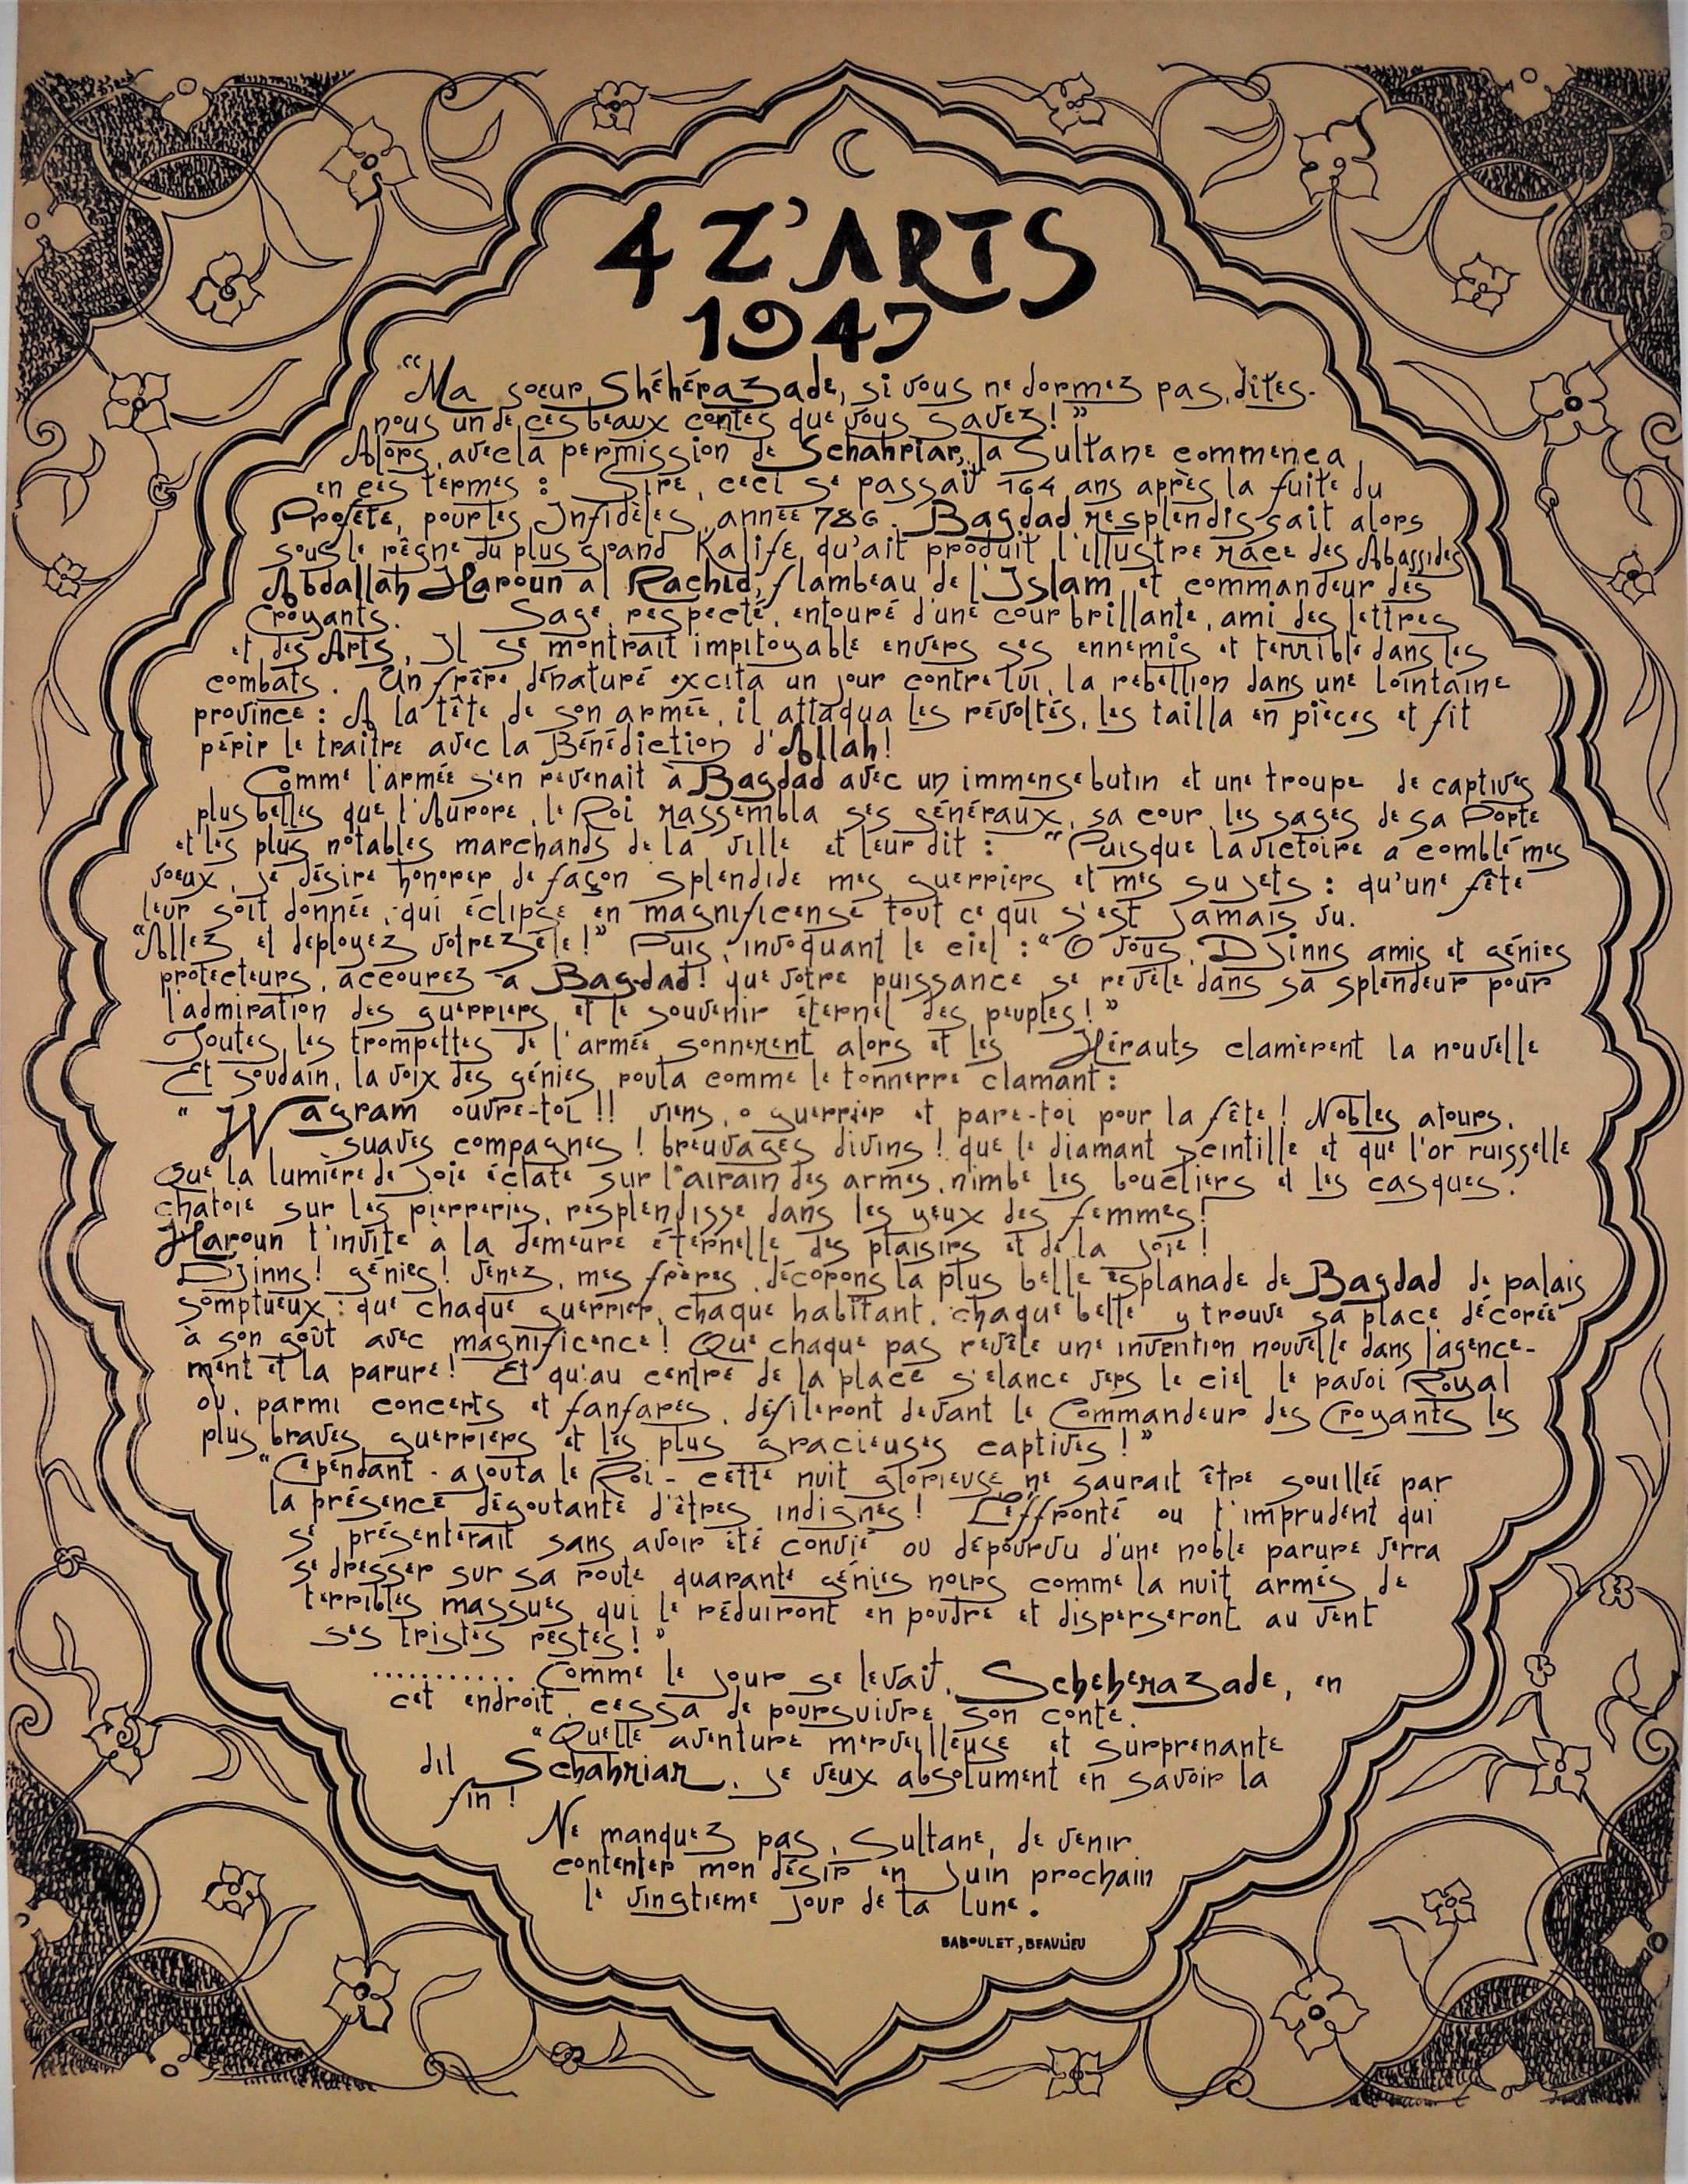 4 Z'ARTS
1947
“Ma sœur Shéhérazade, si vous ne dormez pas, dites-
nous un de ces beaux contes que vous savez!”
Alors, avec la permission de Schahriar, la Sultane commença
en ces termes : Sire, ceci se passait 164 ans après la fuite du
Profète, pour les Infidèles, année 786. Bagdad resplendissait alors
sous le règne du plus grand Kalife qu'ait produit l'illustre race des Abassides
Abdallah Haroun al Rachid, flambeau de l'Islam et commandeur des
Croyants. Sage, respecté, entouré d'une cour brillante, ami des lettres
et des Arts, Il se montrait impitoyable envers ses ennemis et terrible dans les
combats. Un frère dénaturé excita un jour contre lui, la rebellion dans une lointaine
province : A la tête de son armée, il attaqua les révoltés, les tailla en pièces et fit
périr le traitre avec la Bénédiction d'Allah!
Comme l'armée s'en revenait à Bagdad avec un immense butin et une troupe de captives
plus belles que l'Aurore, le Roi rassembla ses généraux, sa cour, les sages de sa Porte
et les plus notables marchands de la ville et leur dit : “Puisque la victoire a comblé mes
voeux, je désire honorer de façon splendide mes guerriers et mes sujets : qu'une fête
leur soit donnée, qui éclipse en magnificense tout ce qui s'est jamais vu.
“Allez et deployez votre zèle!” Puis, invoquant le ciel : “O vous, Djinns amis et génies
protecteurs, accourez à Bagdad! que votre puissance se revèle dans sa splendeur pour
l'admiration des guerriers et le souvenir éternel des peuples!”
Toutes les trompettes de l'armée sonnerent alors et les Hérauts clamèrent la nouvelle
Et soudain, la voix des génies roula comme le tonnerre clamant :
“Wagram ouvre-toi!! viens, o guerrier et pare-toi pour la fête! Nobles atours,
suaves compagnes! breuvages divins! que le diamant scintille et que l'or ruisselle
Que la lumière de joie éclate sur l'airain des armes, nimbe les boucliers et les casques,
chatoie sur les pierreries, resplendisse dans les yeux des femmes!
Haroun t'invite à la demeure éternelle des plaisirs et de la joie!
Djinns! génies! Venez, mes frères, décorons la plus belle esplanade de Bagdad de palais
somptueux : que chaque guerrier, chaque habitant, chaque belle y trouve sa place décorée
à son goût avec magnificence! Que chaque pas revèle une invention nouvelle dans l'agence-
ment et la parure! Et qu'au centre de la place s'elance vers le ciel le pavoi Royal
ou, parmi concerts et fanfares, défileront devant le Commandeur des Croyants les
plus braves guerriers et les plus gracieuses captives!”
“Cependant - ajouta le Roi - cette nuit glorieuse ne saurait être souillée par
la présence dégoutante d'êtres indignes! L'éffronté ou l'imprudent qui
se présenterait sans avoir été convié ou dépourvu d'une noble parure verra
se dresser sur sa route quarante génies noirs comme la nuit armés de
terribles massues qui le réduiront en poudre et disperseront au vent
ses tristes restes!”
........... Comme le jour se levait, Scheherazade, en
cet endroit, cessa de poursuivre son conte.
“Quelle aventure merveilleuse et surprenante
dit Schahriar, je veux absolument en savoir la
fin!
Ne manquez pas, Sultane, de venir
contenter mon désir en Juin prochain
le vingtieme jour de la lune.
BABOULET, BEAULIEU